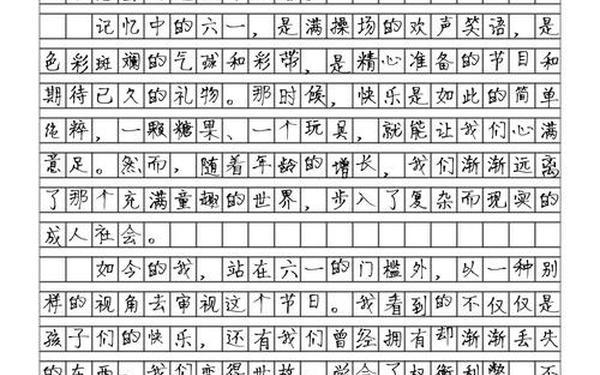 记忆中的六一，是满操场的欢声笑语，是
色彩斑斓的气球和彩带，是精心准备的节目和
期待已久的礼物。那时候，快乐是如此的简单
纯粹，一颗糖果、一个玩具，就能让我们心满
意足。然而，随着年龄的增长，我们渐渐远离
了那个充满童趣的世界，步入了复杂而现实的
成人社会。
如今的我，站在六一的门槛外，以一种别
样的视角去审视这个节日。我看到的不仅仅是
孩子们的快乐，还有我们曾经拥有却渐渐丢失
的东西。我们变得世故，学会了权衡利弊，不